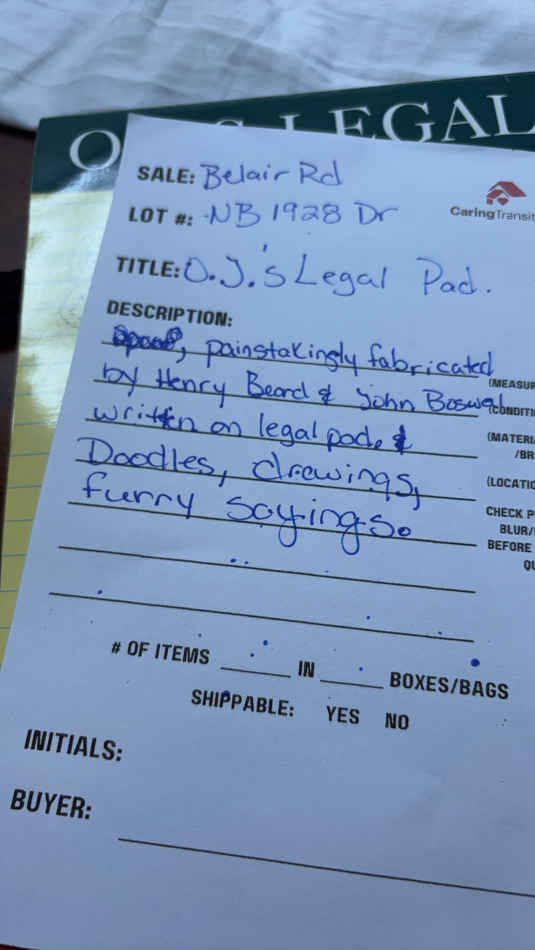 LEGAL
SALE: Belair Rd
CaringTransit
LOT #: NB 1928 Dr
TITLE: O.J.'s Legal Pad.
DESCRIPTION:
, painstakingly fabricated
(MEASUR
by Henry Beard & John Boswel
(CONDITI
written on legal pad, &
(MATERI
/BR
Doodles, drawings,
(LOCATIO
funny sayings.
CHECK P
BLUR/
BEFORE
QU
# OF ITEMS ______ IN ______ BOXES/BAGS
SHIPPABLE: YES NO
INITIALS:
BUYER: